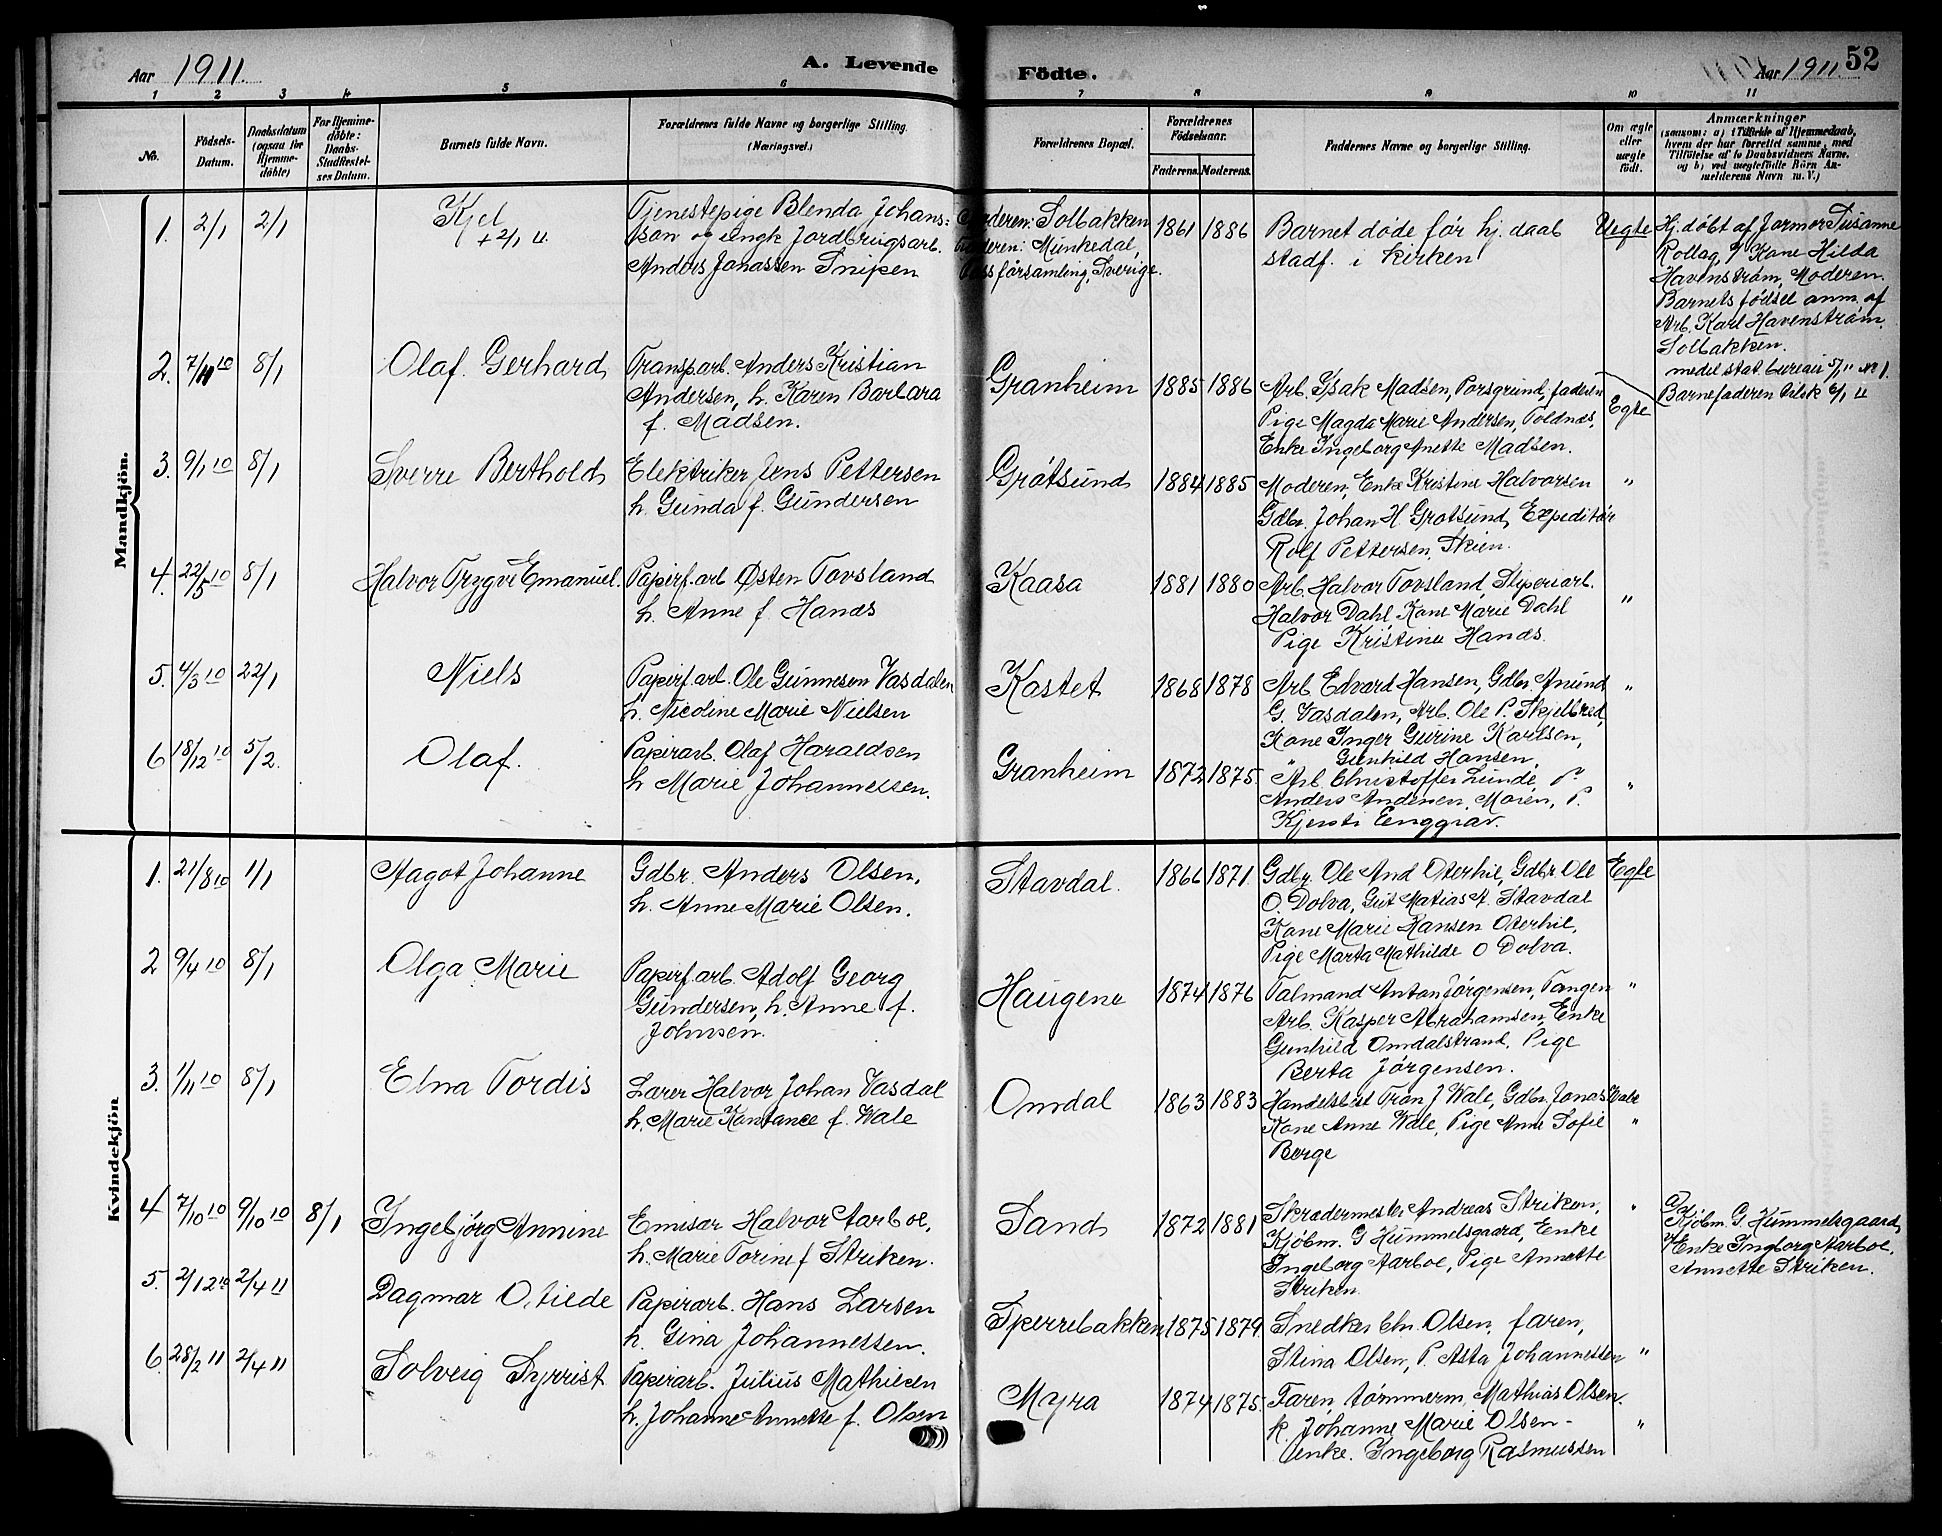 Aar 1911.
A. Levende
Födte.
Aar 1911.
52
1 2 3 4 5 6 7 8 9 10 11
No.
Födsels-
Datum.
Daabsdatum
(ogsaa for
Hjemme-
döbte)
For Hjemme-
döbte:
Daabs-
Stadfæstel-
ses Datum.
Barnets fulde Navn.
Forældrenes fulde Navne og borgerlige Stilling.
(Næringsvei.)
Forældrenes Bopæl.
Forældrenes
Födselsaar.
Faderens. Moderens.
Faddernes Navne og borgerlige Stilling.
Om ægte
eller
uægte
födt.
Anmærkninger
(saasom: a) i Tilfælde af Hjemmedaab,
hvem der har forrettet samme, med
Tilföielse af to Daabsvidners Navne.
og b) ved uægtefödte Börn An-
melderens Navn m. V.)
Mandkjön.
1. 2/1 2/1
Kjel
+ 2/1 11.
Tjenestepige Blenda Johans-
son og ungk Jordbrugsarb.
Anders Jonassen Snipen
Moderen: Solbakken
Faderen: Munkedal,
Foss församling, Sverige.
1861 1886
Barnet døde før hj. daab
stadf. i Kirken
Uegte
Hj. døbt af Jormor Susanne
Rollag, / Kone Hilda
Havenstrøm, Moderen.
Barnets fødsel anm. af
Arb. Karl Havenstrøm.
Solbakken.
medel stat. bureau 5/1 11 No 1.
Barnefaderen tilsk 6/1 11
2. 7/11 10 8/1
Olaf Gerhard
Transp.arb. Anders Kristian
Andersen, h. Karen Barbara
f. Madsen.
Granheim 1885 1886
Arb. Ysak Madsen, Porsgrund, faderen
Pige Magda Marie Andersen, Toldnæs,
Enke Ingeborg Anette Madsen.
Egte
3. 9/1 10 8/1
Sverre Berthold
Elektriker Jens Pettersen
h. Gunda f. Gundersen
Grøtsund 1884 1885
Moderen, Enke Kristine Halvorsen
Gdbr. Johan H. Grøtsund, Expeditør
Rolf Pettersen, Skien.
"
4. 22/5 10 8/1
Halvor Trygve Emanuel.
Papirf.arb Østen Tovsland
h. Anne f. Hanæs
Kaasa 1881 1880
Arb. Halvor Tovsland, Sliperiarb.
Halvor Dahl, Kone Marie Dahl
Pige Kristine Hanæs.
"
5. 4/3 10 22/1
Niels
Papirf.arb. Ole Gunnesen Vasdalen
h. Nicoline Marie Nielsen
Kastet 1868 1878
Arb. Edvard Hansen, Gdbr. Anund
G. Vasdalen, Arb. Ole P. Skjelbred,
Kone Inger Gurine Karlsen,
" Gunhild Hansen.
"
6 18/12 10 5/2.
Olaf.
Papirarb. Olaf Haraldsen
h Marie Johannessen.
Granheim 1872 1875
Arb. Christoffer Lunde, P.
Anders Andersen, Moren, P.
Kjersti Enggrav.
"
Kvindekjön
1. 21/8 10 1/1
Aagot Johanne
Gdbr. Anders Olsen,
h. Anne Marie Olsen.
Stavdal. 1866 1871.
Gdbr. Ole And Oterhil, Gdbr Ole
O. Dolva, Gut Matias A. Stavdal
Kone Marie Hansen Oterhil,
Pige Marta Mathilde O Dolva.
Egte
2 9/4 10 8/1
Olga Marie
Papirf.arb Adolf Georg
Gundersen, h. Anne f.
Johnsen.
Haugene 1874 1876
Talmand Anton Jørgensen, Tangen
Arb. Kasper Abrahamsen, Enke
Gunhild Omdalstrand, Pige
Berta Jørgensen.
"
3. 1/11 10 8/1
Elna Tordis
Lærer Halvor Johan Vasdal
h. Marie Konstance f. Wale
Omdal 1863 1883
Handelsbest Tron J Wale, Gdbr. Jonas Wale
Kone Anne Wale, Pige Anne Sofie
Berge
"
4 7/10 10 9/10 10 8/1
Ingebjørg Annine
Emisær Halvor Aarboe,
h. Marie Torine f Striken.
Sand 1872 1881
Skrædermester Andreas Striken,
Kjøbm. G Hummelsgaard, Enke
Ingeborg Aarboe, Pige Annette
Striken.
"
Kjøbm. G. Hummelsgaard,
Enke Ingborg Aarboe.
Annette Striken.
5. 2/12 10 2/4 11
Dagmar Otilde
Papirarb. Hans Larsen
h. Gina Johannessen.
Sperrebakken 1875 1879.
Snedker Chr. Olsen, faren,
Stina Olsen, P. Asta Johannessen
"
6. 28/2 11 2/4 11
Solveig Synrist
Papirarb. Julius Mathisen
h. Johanne Annette f. Olsen
Myra 1874 1875.
Faren, tømmerm. Mathias Olsen.
k. Johanne Marie Olsen -
enke. Ingeborg Rasmussen
"